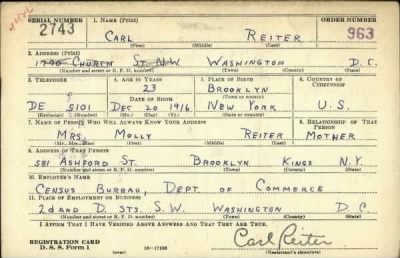 SERIAL NUMBER 1. NAME (Print) ORDER NUMBER
2743 CARL REITER 963
(First) (Middle) (Last)
2. ADDRESS (Print)
CHURCH ST. N.W. WASHINGTON D.C.
(Number and street or R. F. D. number) (Town) (County) (State)
3. TELEPHONE 4. AGE IN YEARS 5. PLACE OF BIRTH 6. COUNTRY OF CITIZENSHIP
23 BROOKLYN
DATE OF BIRTH (Town or county)
DE 5101 DEC 20 1916 NEW YORK U.S.
(Exchange) (Number) (Mo.) (Day) (Yr.) (State or country)
7. NAME OF PERSON WHO WILL ALWAYS KNOW YOUR ADDRESS 8. RELATIONSHIP OF THAT PERSON
MRS. MOLLY REITER MOTHER
(Mr., Mrs., Miss) (First) (Middle) (Last)
9. ADDRESS OF THAT PERSON
581 ASHFORD ST. BROOKLYN KINGS N.Y.
(Number and street or R. F. D. number) (Town) (County) (State)
10. EMPLOYER'S NAME
CENSUS BUREAU, DEPT OF COMMERCE
11. PLACE OF EMPLOYMENT OR BUSINESS
2d AND D STS. S.W. WASHINGTON D C
(Number and street or R. F. D. number) (Town) (County) (State)
I AFFIRM THAT I HAVE VERIFIED ABOVE ANSWERS AND THAT THEY ARE TRUE.
REGISTRATION CARD
D. S. S. Form 1 16-17105 Carl Reiter
(Registrant's signature)